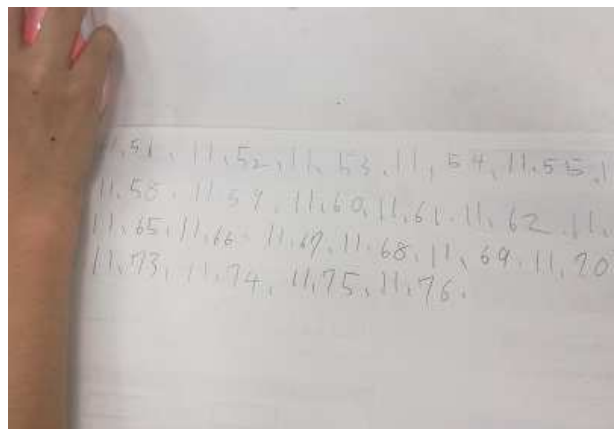 11.51、11.52、11、53.11、54、11.55.1
11.58.11.59.11.60、11.61.11、62.11.
11.65、11.66.11.67、11.68.11、69.11、70
11.73、11.74、11.75、11.76.